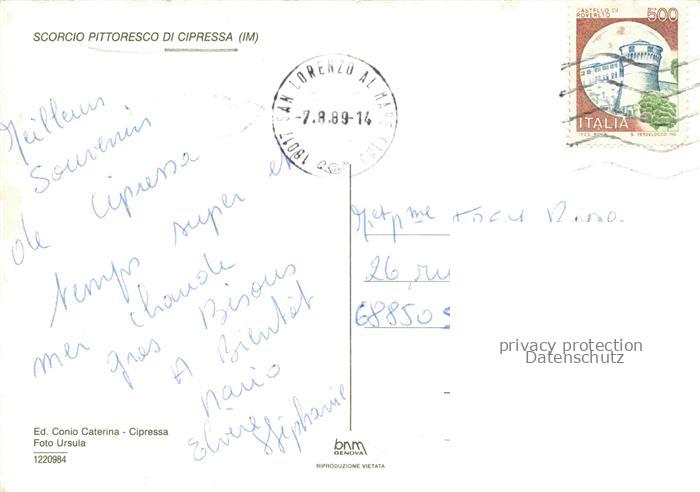 SCORCIO PITTORESCO DI CIPRESSA (IM)
CASTELLO DI
ROVERETO
500
ITALIA
18017 SAN LORENZO AL MARE (IM)
-7.8.89-14
Meilleurs
Souvenirs
de Cipressa
temps super et
mer chaude
gros Bisous
A Bientôt
Mario
Elvire Stéphanie
M et Mme
26, ru
68850 S
privacy protection
Datenschutz
Ed. Conio Caterina - Cipressa
Foto Ursula
1220984
bnm
GENOVA
RIPRODUZIONE VIETATA